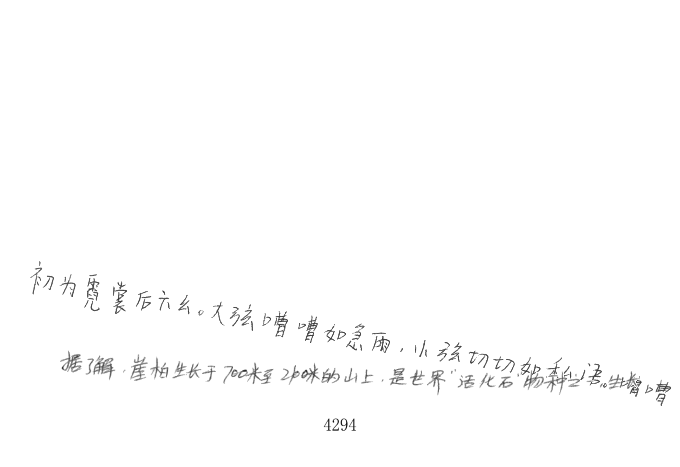 初为霓裳后六幺。大弦嘈嘈如急雨，小弦切切如私语。嘈
据了解，崖柏生长于700米至2100米的山上，是世界"活化石"物种之
4294